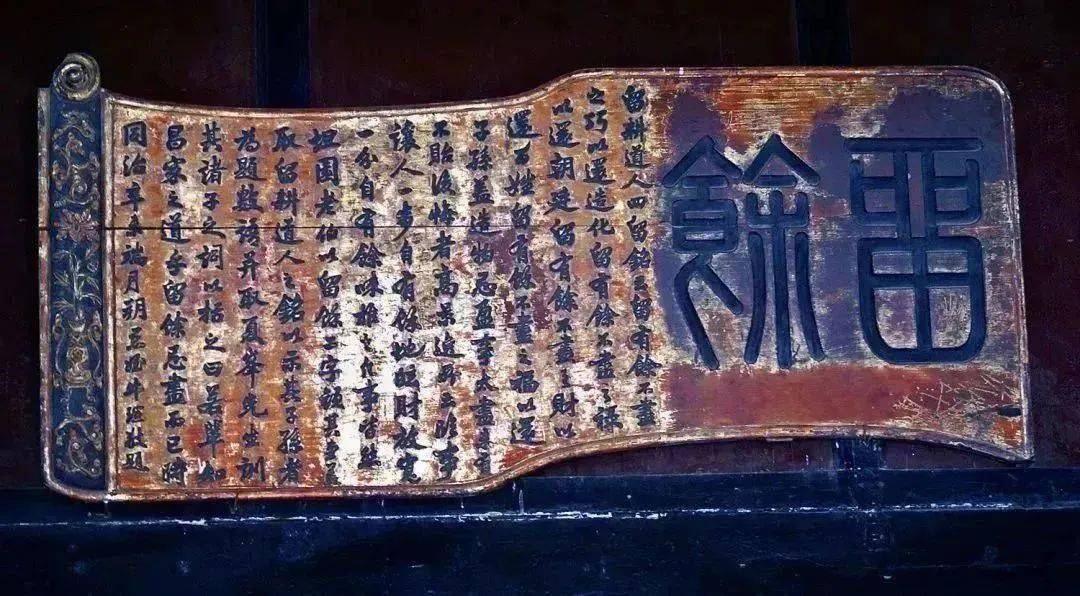 留餘
留耕道人四留銘云留有餘不盡
之巧以還造化留有餘不盡之祿
以還朝廷留有餘不盡之財以
還百姓留有餘不盡之福以還
子孫蓋造物忌盈事太盡未有
不貽後悔者高景逸所云臨事
讓人一步自有餘地臨財放寬
一分自有餘味推之凡事皆然
坦園老伯以留餘二字顏其堂蓋
取留耕道人之銘以示其子孫者
為題數語并取夏峯先生訓
其諸子之詞以括之曰若輩知
昌家之道乎留餘忌盡而已時
同治辛未端月朔愚姪牛瑄敬題